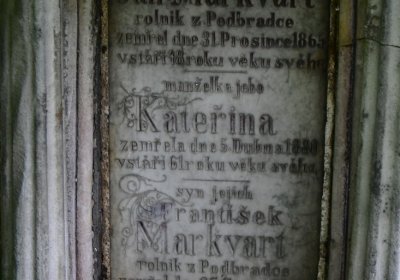 Markvart
rolník z Podbradce
zemřel dne 31. Prosince 1865
vstáří 48 roku věku svého
manželka jeho
Kateřina
zemřela dne 5. Dubna 1880
vstáří 61 roku věku svého
syn jejich
František
Markvart
rolník z Podbradce